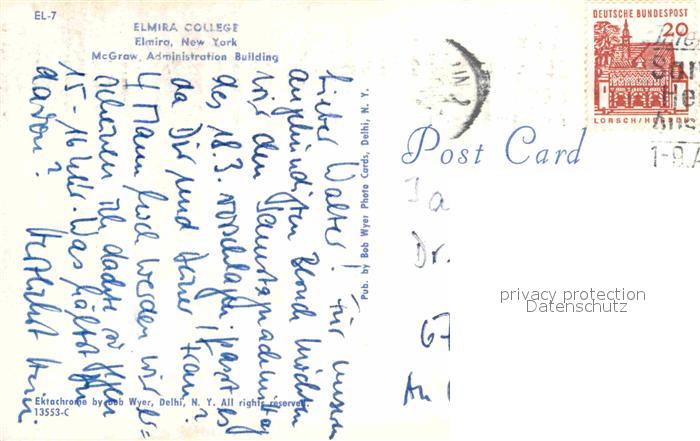 EL-7
ELMIRA COLLEGE
Elmira, New York
McGraw Administration Building
Lieber Walter! Für unsern
angekündigten Besuch möchten
wir den Samstagnachmittag
des 18.3. vorschlagen; passt es
da Dir und Deiner Frau?
4 Mann hoch werden wir er=
scheinen ich dachte so gegen
15-16 Uhr. Was hältst Du
davon?
Herzlichst Dein
Pub. by Bob Wyer Photo Cards, Delhi, N. Y.
Ektachrome by Bob Wyer, Delhi, N. Y. All rights reserved.
13553-C
Post Card
DEUTSCHE BUNDESPOST
20
LORSCH/HESSEN
1-9.A
Dr.
67
An
privacy protection
Datenschutz